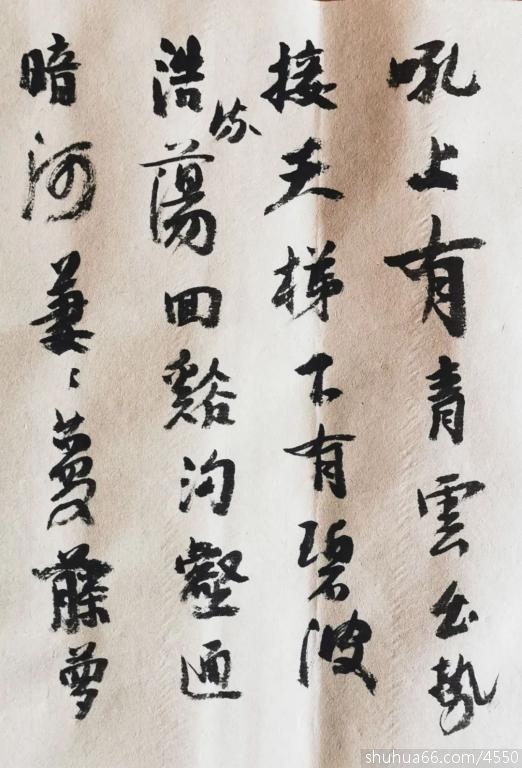 吼上有青雲出勢
接天梯下有碧波
浩蕩回谿沟壑通
暗河萋々蔓藤夢
shuhua66.com/4550